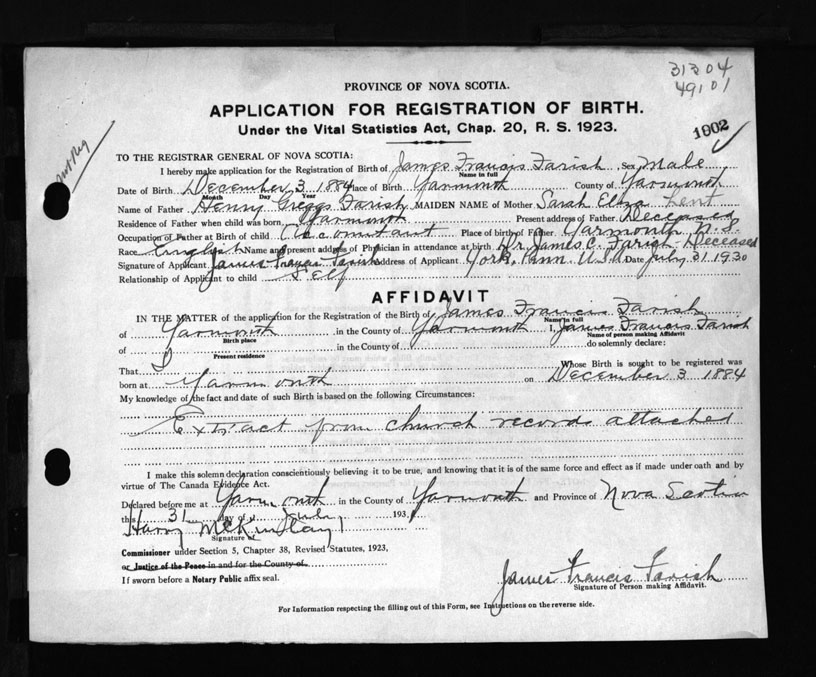 31304
49101
PROVINCE OF NOVA SCOTIA.
APPLICATION FOR REGISTRATION OF BIRTH.
Under the Vital Statistics Act, Chap. 20, R. S. 1923.
1002
TO THE REGISTRAR GENERAL OF NOVA SCOTIA:
I hereby make application for the Registration of Birth of James Francis Farish Sex Male
Name in full
Date of Birth December 3 1884 Place of Birth Yarmouth County of Yarmouth
Month Day Year
Name of Father Henry Greggs Farish MAIDEN NAME of Mother Sarah Eliza Lent
Residence of Father when child was born Yarmouth Present address of Father Deceased
Occupation of Father at Birth of child Accountant Place of birth of Father Yarmouth N.S.
Race English Name and present address of Physician in attendance at birth Dr. James C. Farish - Deceased
Signature of Applicant James Francis Farish Address of Applicant York, Penn. U.S.A. Date July 31 1930
Relationship of Applicant to child Self
AFFIDAVIT
IN THE MATTER of the application for the Registration of the Birth of James Francis Farish
Name in full
of Yarmouth in the County of Yarmouth I, James Francis Farish
Birth place Name of person making Affidavit
of do solemnly declare:
Present residence
That I Whose Birth is sought to be registered was
born at Yarmouth on December 3 1884
My knowledge of the fact and date of such Birth is based on the following Circumstances:
Extract from church records attached
I make this solemn declaration conscientiously believing it to be true, and knowing that it is of the same force and effect as if made under oath and by
virtue of The Canada Evidence Act.
Declared before me at Yarmouth in the County of Yarmouth and Province of Nova Scotia
this 31 day of July 193
Harry McKinlay
Signature of
Commissioner under Section 5, Chapter 38, Revised Statutes, 1923,
or Justice of the Peace in and for the County of
If sworn before a Notary Public affix seal.
James Francis Farish
Signature of Person making Affidavit.
For Information respecting the filling out of this Form, see Instructions on the reverse side.